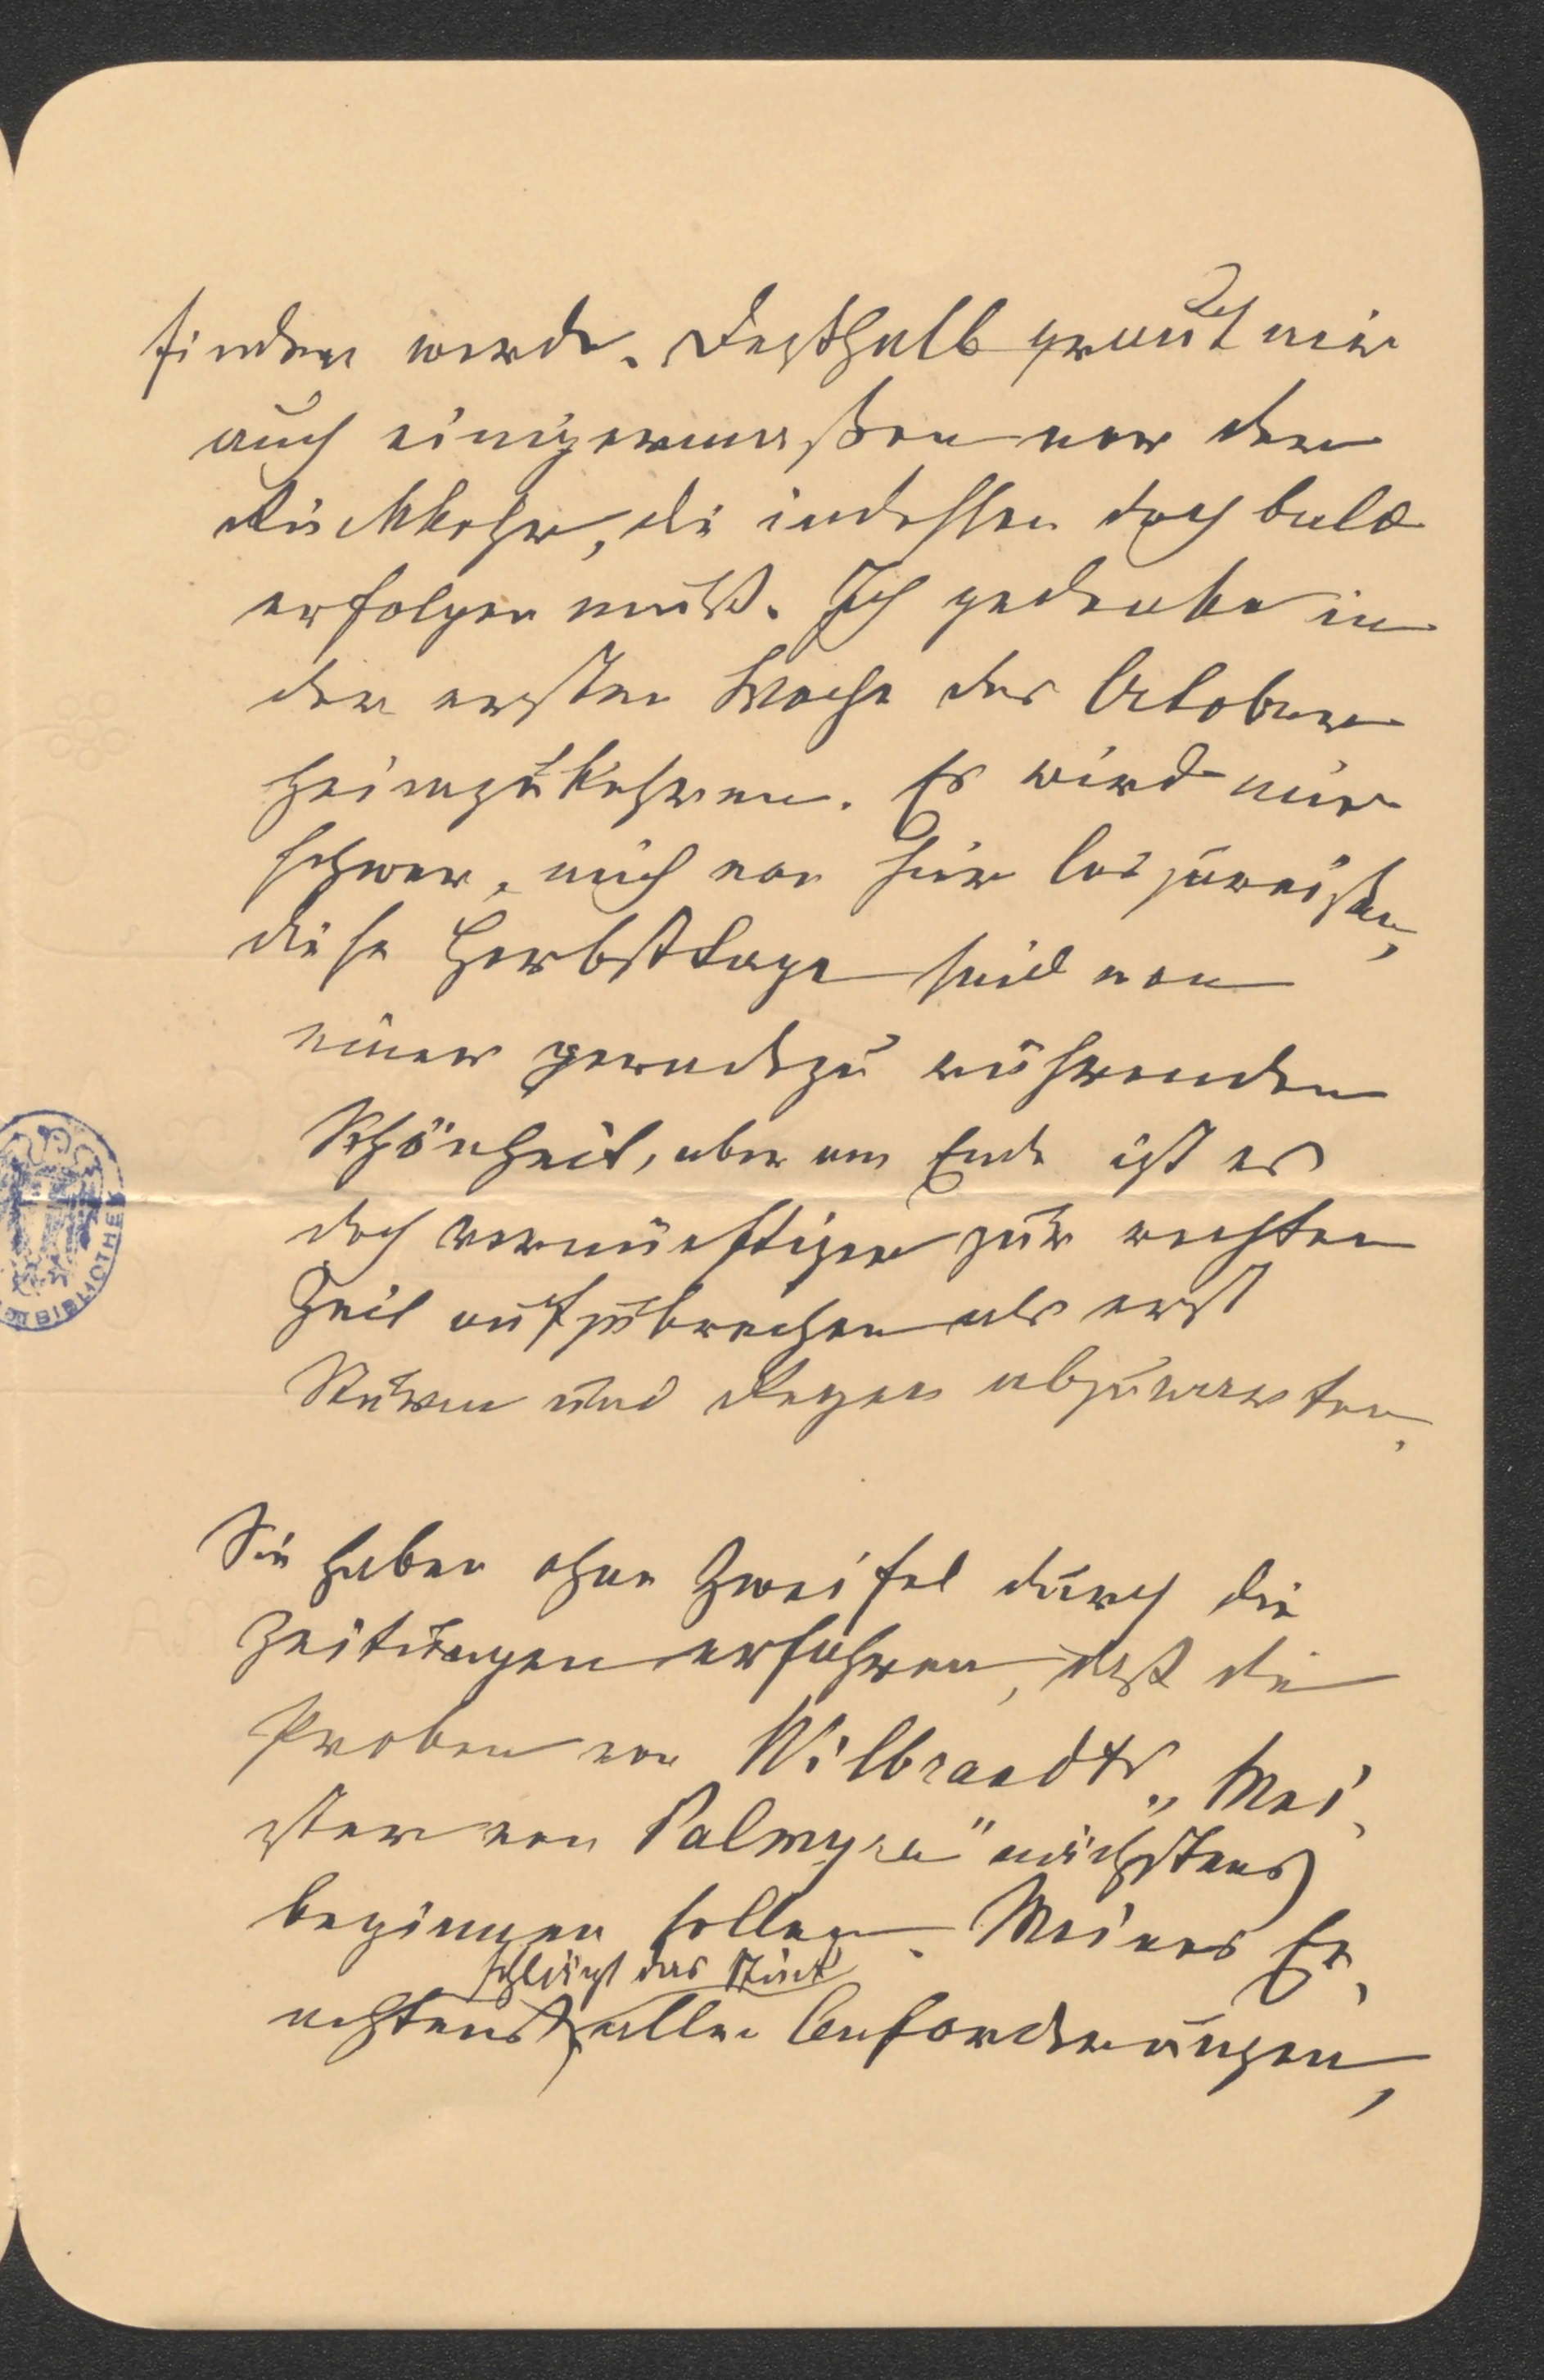 finden werde. Deßhalb graut mir
auch einigermaßen vor der
Rückkehr, die indessen doch bald
erfolgen muß. Ich gedenke in
der ersten Woche des Oktober
heimzukehren. Es wird mir
schwer, mich von hier loszureißen,
diese Herbsttage sind von
einer geradezu rührenden
Schönheit, aber am Ende ist es
doch vernünftiger zur rechten
Zeit aufzubrechen als erst
Sturm und Regen abzuwarten.
Sie haben ohne Zweifel durch die
Zeitungen erfahren, daß die
Proben von Wilbrandts „Mei-
ster von Palmyra" nächstens
beginnen sollen. Meines Er-
schlägt das Stück
achtens allen Anforderungen,
BIBLIOTHEK